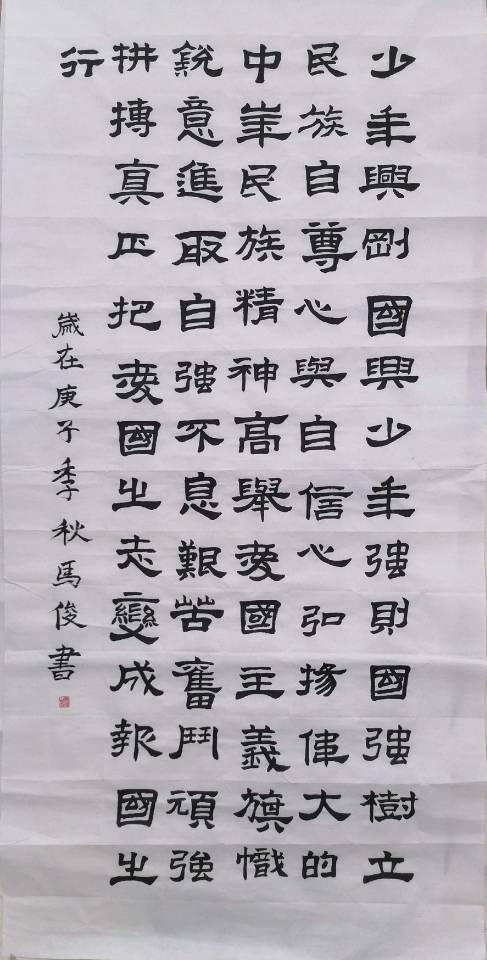 少年興剛國興少年強則國強樹立
民族自尊心與自信心弘揚偉大的
中華民族精神高舉愛國主義旗幟
銳意進取自強不息艱苦奮鬥頑強
拼搏真正把愛國之志變成報國之
行
歲在庚子季秋馬俊書